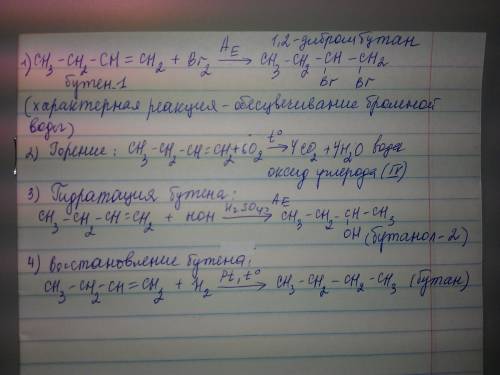 1,2-дибромбутан
1) CH₃-CH₂-CH=CH₂ + Br₂ →(AE) CH₃-CH₂-CH-CH₂
бутен-1 Br Br
(характерная реакция - обесцвечивание бромной
воды)
2) Горение: CH₃-CH₂-CH=CH₂+6O₂ →(t°) 4CO₂+4H₂O вода
оксид углерода (IV)
3) Гидратация бутена:
CH₃-CH₂-CH=CH₂ + HOH →(H₂SO₄, AE) CH₃-CH₂-CH-CH₃
OH (бутанол-2)
4) восстановление бутена:
CH₃-CH₂-CH=CH₂ + H₂ →(Pt, t°) CH₃-CH₂-CH₂-CH₃ (бутан)